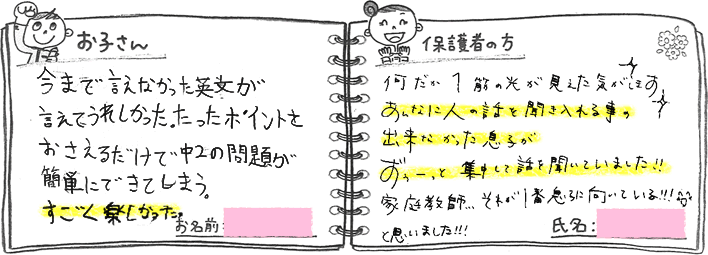 お子さん
今まで言えなかった英文が
言えてうれしかった。たったポイントを
おさえるだけで中2の問題が
簡単にできてしまう。
すごく楽しかった。
お名前:
保護者の方
何だか1筋の光が見えた気がします
あんなに人の話を聞き入れる事の
出来なかった息子が
ずぅーっと集中して話を聞いていました!!
家庭教師… それが1番息子に向いている!!!
と思いました!!!
氏名: